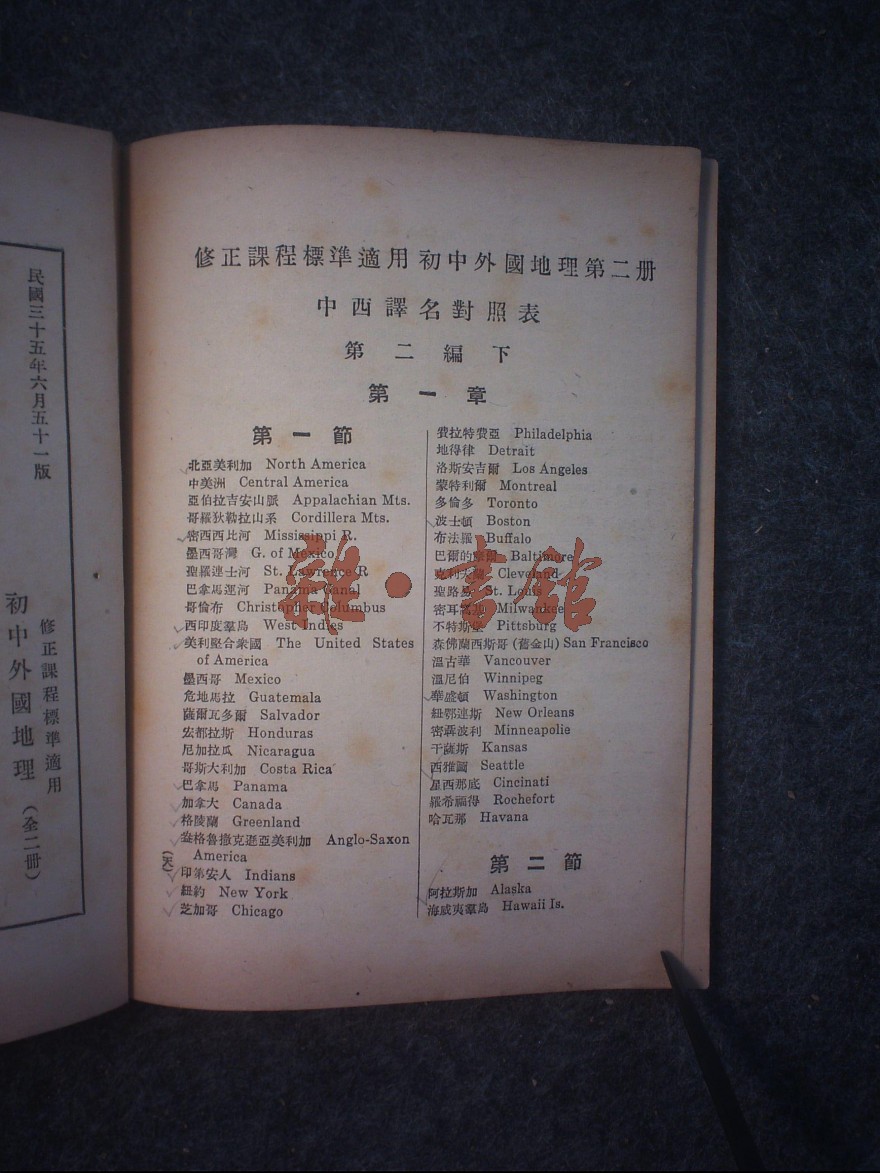 民國三十五年六月五十一版
修正課程標準適用
初中外國地理（全二冊）
修正課程標準適用初中外國地理第二册
中西譯名對照表
第二編下
第一章
第一節
北亞美利加 North America
中美洲 Central America
亞伯拉吉安山脈 Appalachian Mts.
哥羅狄勒拉山系 Cordillera Mts.
密西西比河 Mississippi R.
墨西哥灣 G. of Mexico
聖羅連士河 St. Lawrence R
巴拿馬運河 Panama Canal
哥倫布 Christopher Columbus
西印度羣島 West Indies
美利堅合衆國 The United States
of America
墨西哥 Mexico
危地馬拉 Guatemala
薩爾瓦多爾 Salvador
宏都拉斯 Honduras
尼加拉瓜 Nicaragua
哥斯大利加 Costa Rica
巴拿馬 Panama
加拿大 Canada
格陵蘭 Greenland
盎格魯撒克遜亞美利加 Anglo-Saxon
America
印第安人 Indians
紐約 New York
芝加哥 Chicago
費拉特費亞 Philadelphia
地得律 Detrait
洛斯安吉爾 Los Angeles
蒙特利爾 Montreal
多倫多 Toronto
波士頓 Boston
布法羅 Buffalo
巴爾的摩爾 Baltimore
克利夫蘭 Cleveland
聖路易 St. Louis
密耳瓦基 Milwankee
不特斯堡 Pittsburg
森佛蘭西斯哥 (舊金山) San Francisco
溫古華 Vancouver
溫尼伯 Winnipeg
華盛頓 Washington
紐鄂連斯 New Orleans
密聶波利 Minneapolie
干薩斯 Kansas
西雅圖 Seattle
星西那底 Cincinati
羅希福得 Rochefort
哈瓦那 Havana
第二節
阿拉斯加 Alaska
海威夷羣島 Hawaii Is.
雜·書館